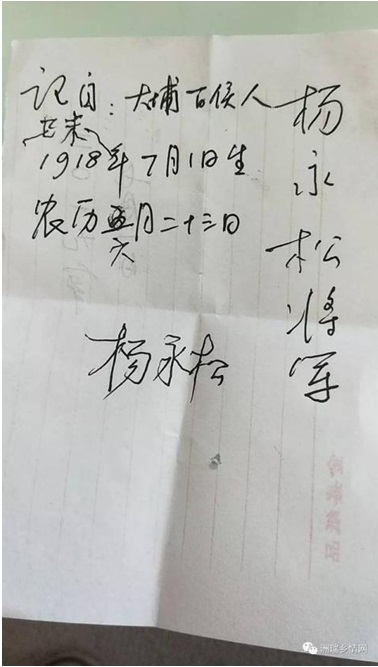 杨永松将军
记自：大埔百侯人
1918年7月1日生
农历五月二十三日
六
杨永松
洲瑞乡情网